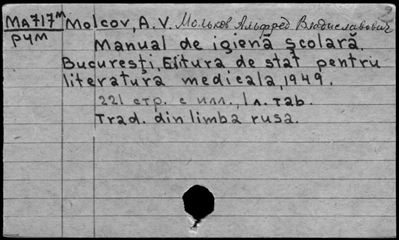 MA717м Molcov, A.V. Мольков Альфред Владиславович
РУМ
Manual de igienă şcolară.
Bucureşti, Editura de stat pentru
literatura medicala, 1949.
221 стр. с илл., 1 л. таб.
Trad. din limba rusa.